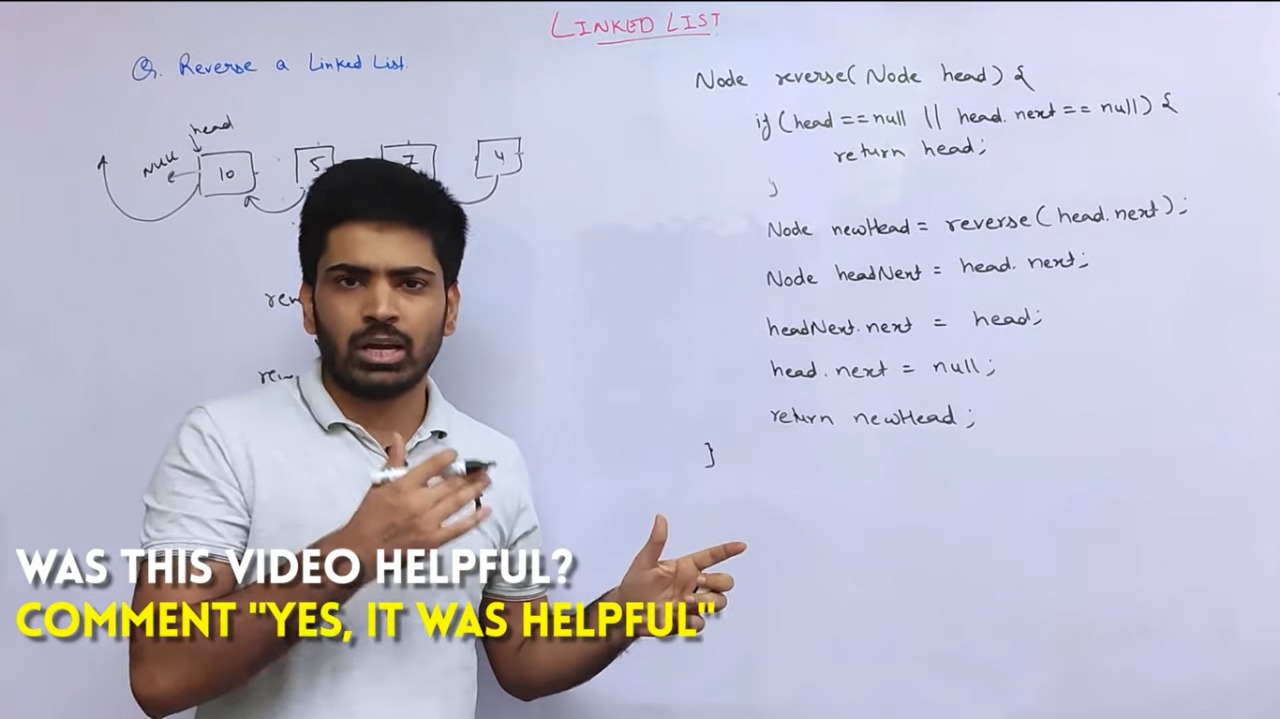 LINKED LIST
Q. Reverse a Linked List.
head
NULL
10 5 7 4
Node reverse(Node head) {
if (head == null || head.next == null) {
return head;
}
Node newHead = reverse(head.next);
Node headNext = head.next;
headNext.next = head;
head.next = null;
return newHead;
}
WAS THIS VIDEO HELPFUL?
COMMENT "YES, IT WAS HELPFUL"